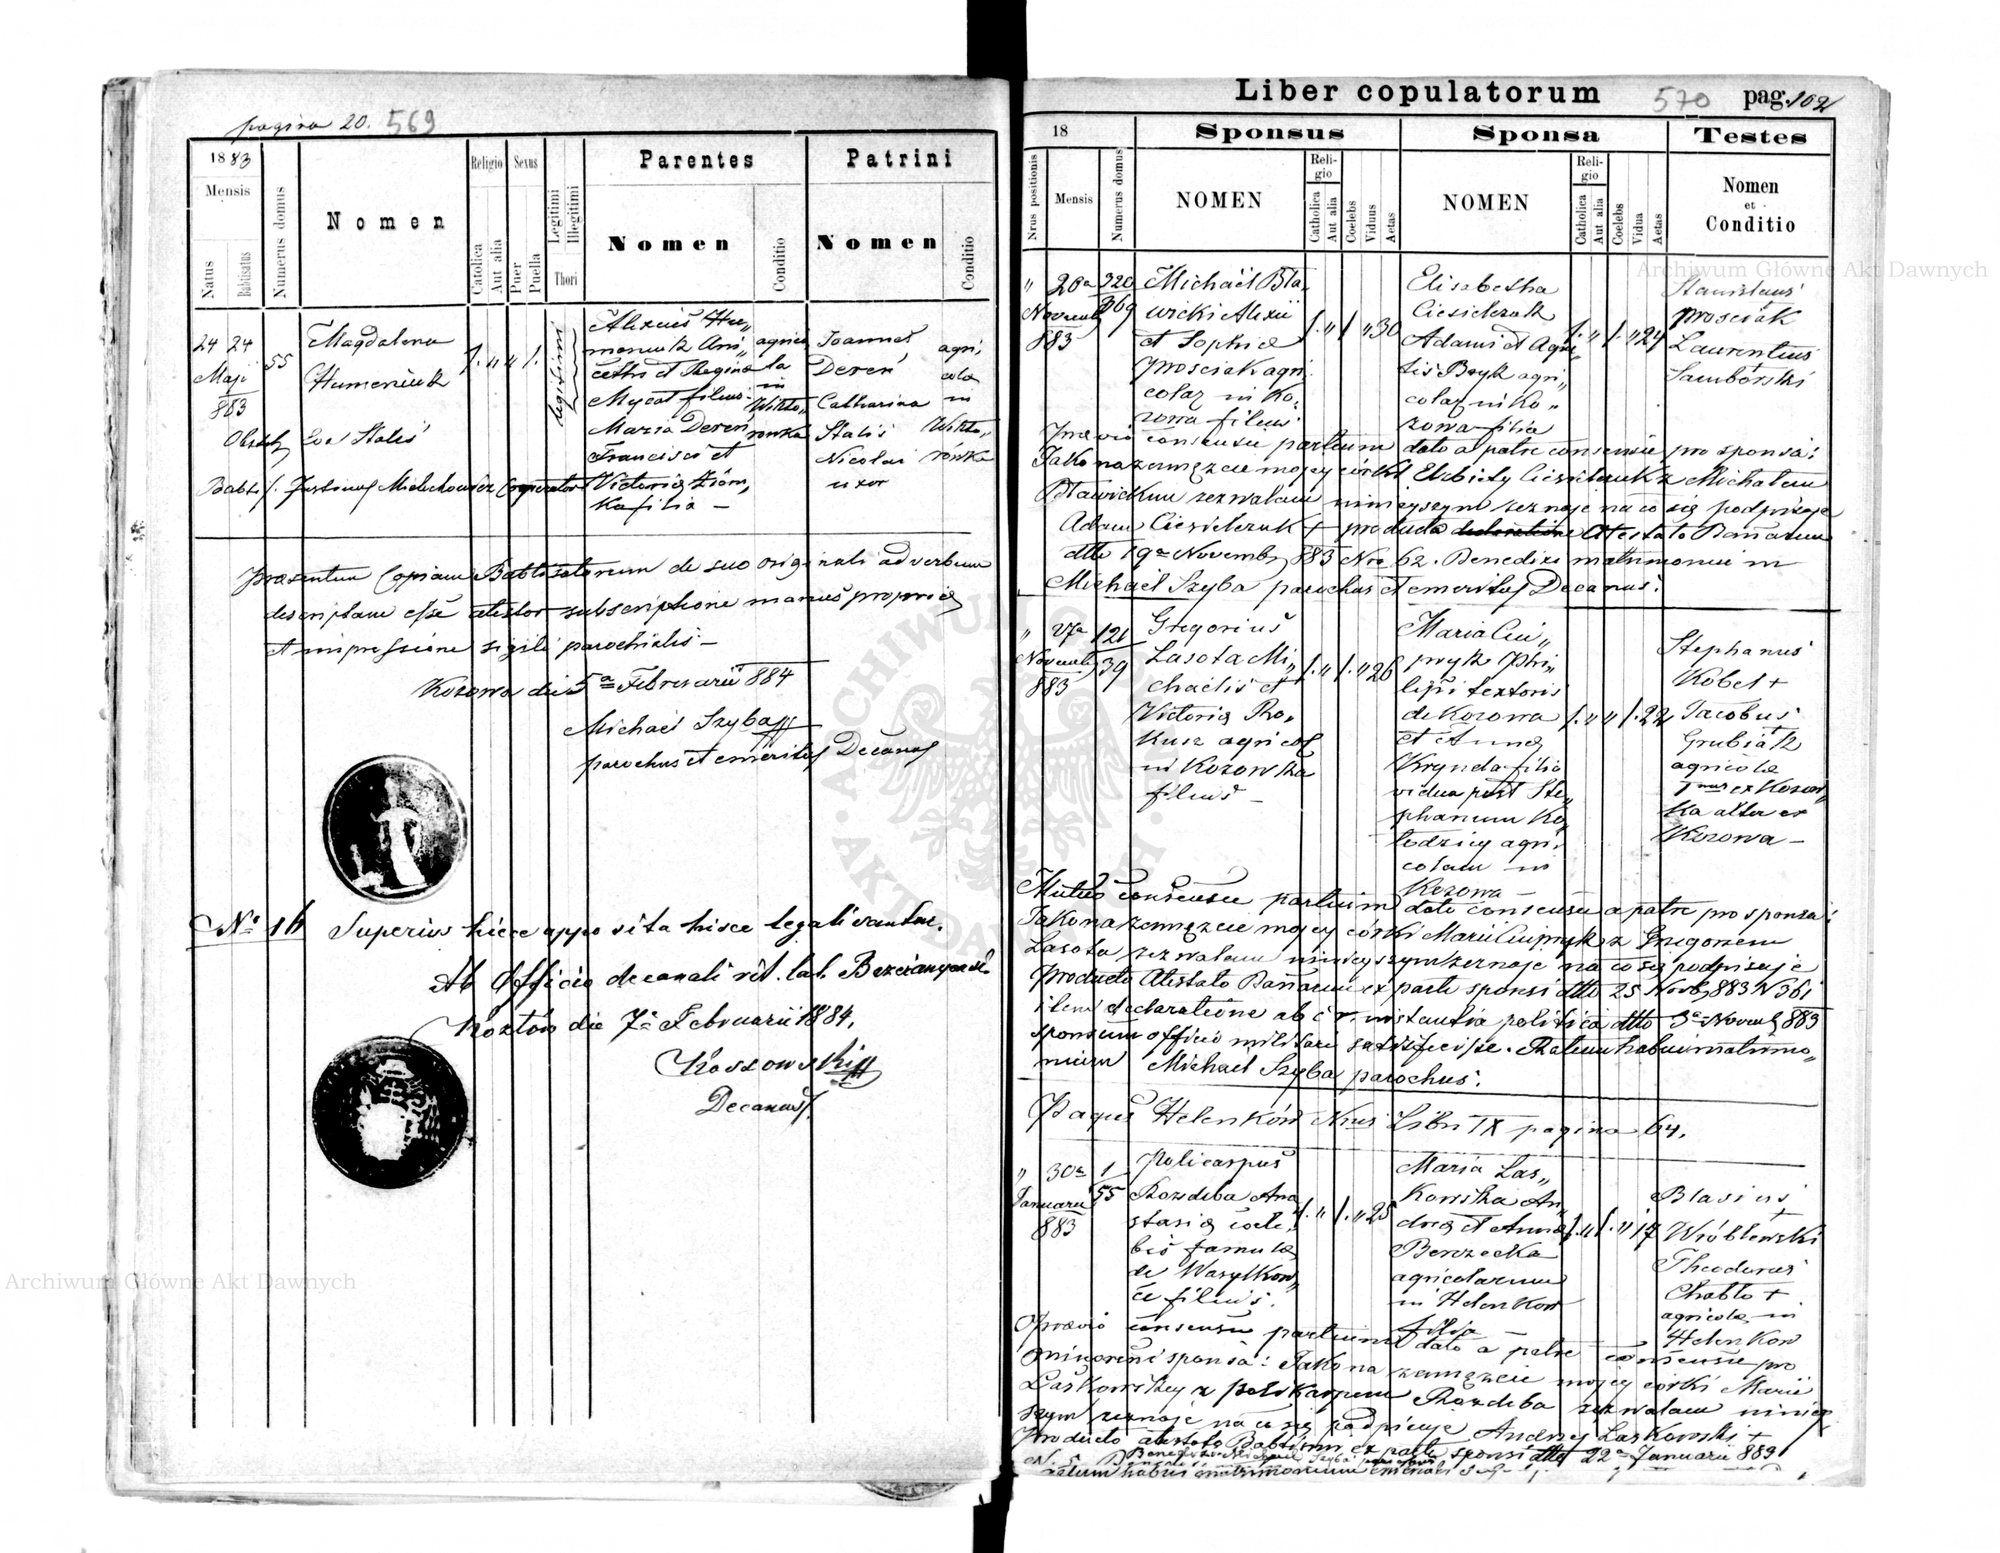 pagina 20. 569
1883
Mensis
Natus
Babtisatus
Numerus domus
Nomen
Religio
Catolica
Aut alia
Sexus
Puer
Puella
Legitimi
Illegitimi
Thori
Parentes
Nomen
Conditio
Patrini
Nomen
Conditio
24 24
Maji
883
55
Magdalena
Humeniuk
1. " " 1.
legitimi
Alexius Hu„
meniuk Ani„
cethi et Regina
Mycat filius
Maria Dereń
Francisci et
Victoria
filia —
agrico
la
in
Wikto„
rówka
Joannes
Dereń
Catharina
Stalis
Nicolai
uxor
agri„
cola
in
Wikto„
rówka
Obstet Eva Stalis
Babts. Justinus Mielechowicz Cooperator
Praesentem Copiam Babtisatorum de suo originali ad verbum
descriptam esse atestor subscriptione manus propriae
et impressione sigili parochialis —
Kozowa die 5a Februarii 884
Michael Szyba
parochus et emeritus Decanus
No 16 Superius hicce apposita hisce legalisantur.
Ab Officio decanali rit. lat. Brzezanyensi
Kozłów die 7a Februarii 1884.
Kossowski
Decanus.
Liber copulatorum 570 pag. 102
18
Sponsus
Sponsa
Testes
Nrus positionis
Mensis
Numerus domus
NOMEN
Reli-
gio
Catholica
Aut alia
Coelebs
Viduus
Aetas
NOMEN
Reli-
gio
Catholica
Aut alia
Coelebs
Vidua
Aetas
Nomen
et
Conditio
" 20a
Novemb
883
320
369
Michaël Bła„
wicki Alexii
et Sophia
Prosciak agri„
colar in Ko„
zowa filius
1. " 1 " 30
Elisabetha
Ciesielczuk
Adami et Agne„
tis Bryk agri„
colar in Ko„
zowa filia
1. " 1. " 24
Stanislaus
Prosciak
Laurentius
+
Samborski
Praevio consensu partium dato a patre consensu pro sponsa:
Jako na zamęzcie mojey córki Elzbiety Ciesielczuk z Michałem
Bławickim zezwalam niniejszym zeznaje na co się podpisuje
Adam Ciesielczuk + producto declaratione Atestato Bannorum
dtto 19a Novemb 883 Nro 62. Benedixi matrimonium
Michaël Szyba parochus et emeritus Decanus.
" 27a
Novemb
883
121
39
Gregorius
Lasota Mi„
chaelis et
Victoria Ro„
kusz agricol
in Kozowka
filius —
1. " 1. " 26
Maria
Phi„
lippi textoris
de Kozowa
et Anna
Krynda filia
vidua post Ste„
phanum Ko„
łodziey agri„
colam in
Kozowa —
1. " " 1. 22
Stephanus
Kobel +
Jacobus
Grubiak
agricolae
1mus ex Kozow„
ka alter ex
Kozowa —
Mutuo consensu partium dato consensu a patre pro sponsa:
Jako na zamęzcie mojey córki Marii z Grzegorzem
Lasota zezwalam niniejszym zeznaje na co się podpisuje
Producto Atestato Bannorum ex parte sponsi dtto 25 Novb 883 N 361
item declaratione ab instantia politica dtto 3a Novemb 883
sponsum officio militari satisfecisse. Ratum habui matrimo„
nium Michaël Szyba parochus.
Pagus Helenków Nrus Libri IX pagina 64.
" 30a
Januarii
883
1
55
Policarpus
Rozdeba Ana
stasia coele„
bis famula
de Wasylkow„
ce filius.
1. " 1. " 25
Maria Las„
kowska An„
drea et Anna
Berezecka
agricolarum
in Helenkow
filia —
1. " 1. " 17
Blasius
+
Wróblewski
Theodorus
Chabło +
agricola in
Helenkow
Praevio consensu partium dato a patre consensu pro
minorene sponsa: Jako na zamęzcie mojey córki Marii
Laskowskey z Polikarpem Rozdeba zezwalam niniey
szym zeznaje na co się podpisuje Andrzey Laskowski +
Producto atestato Babtismi ex parte sponsi dtto 22a Januarii 883
Ratum habui matrimonium
Archiwum Główne Akt Dawnych
Archiwum Główne Akt Dawnych
ARCHIWUM GŁÓWNE AKT DAWNYCH